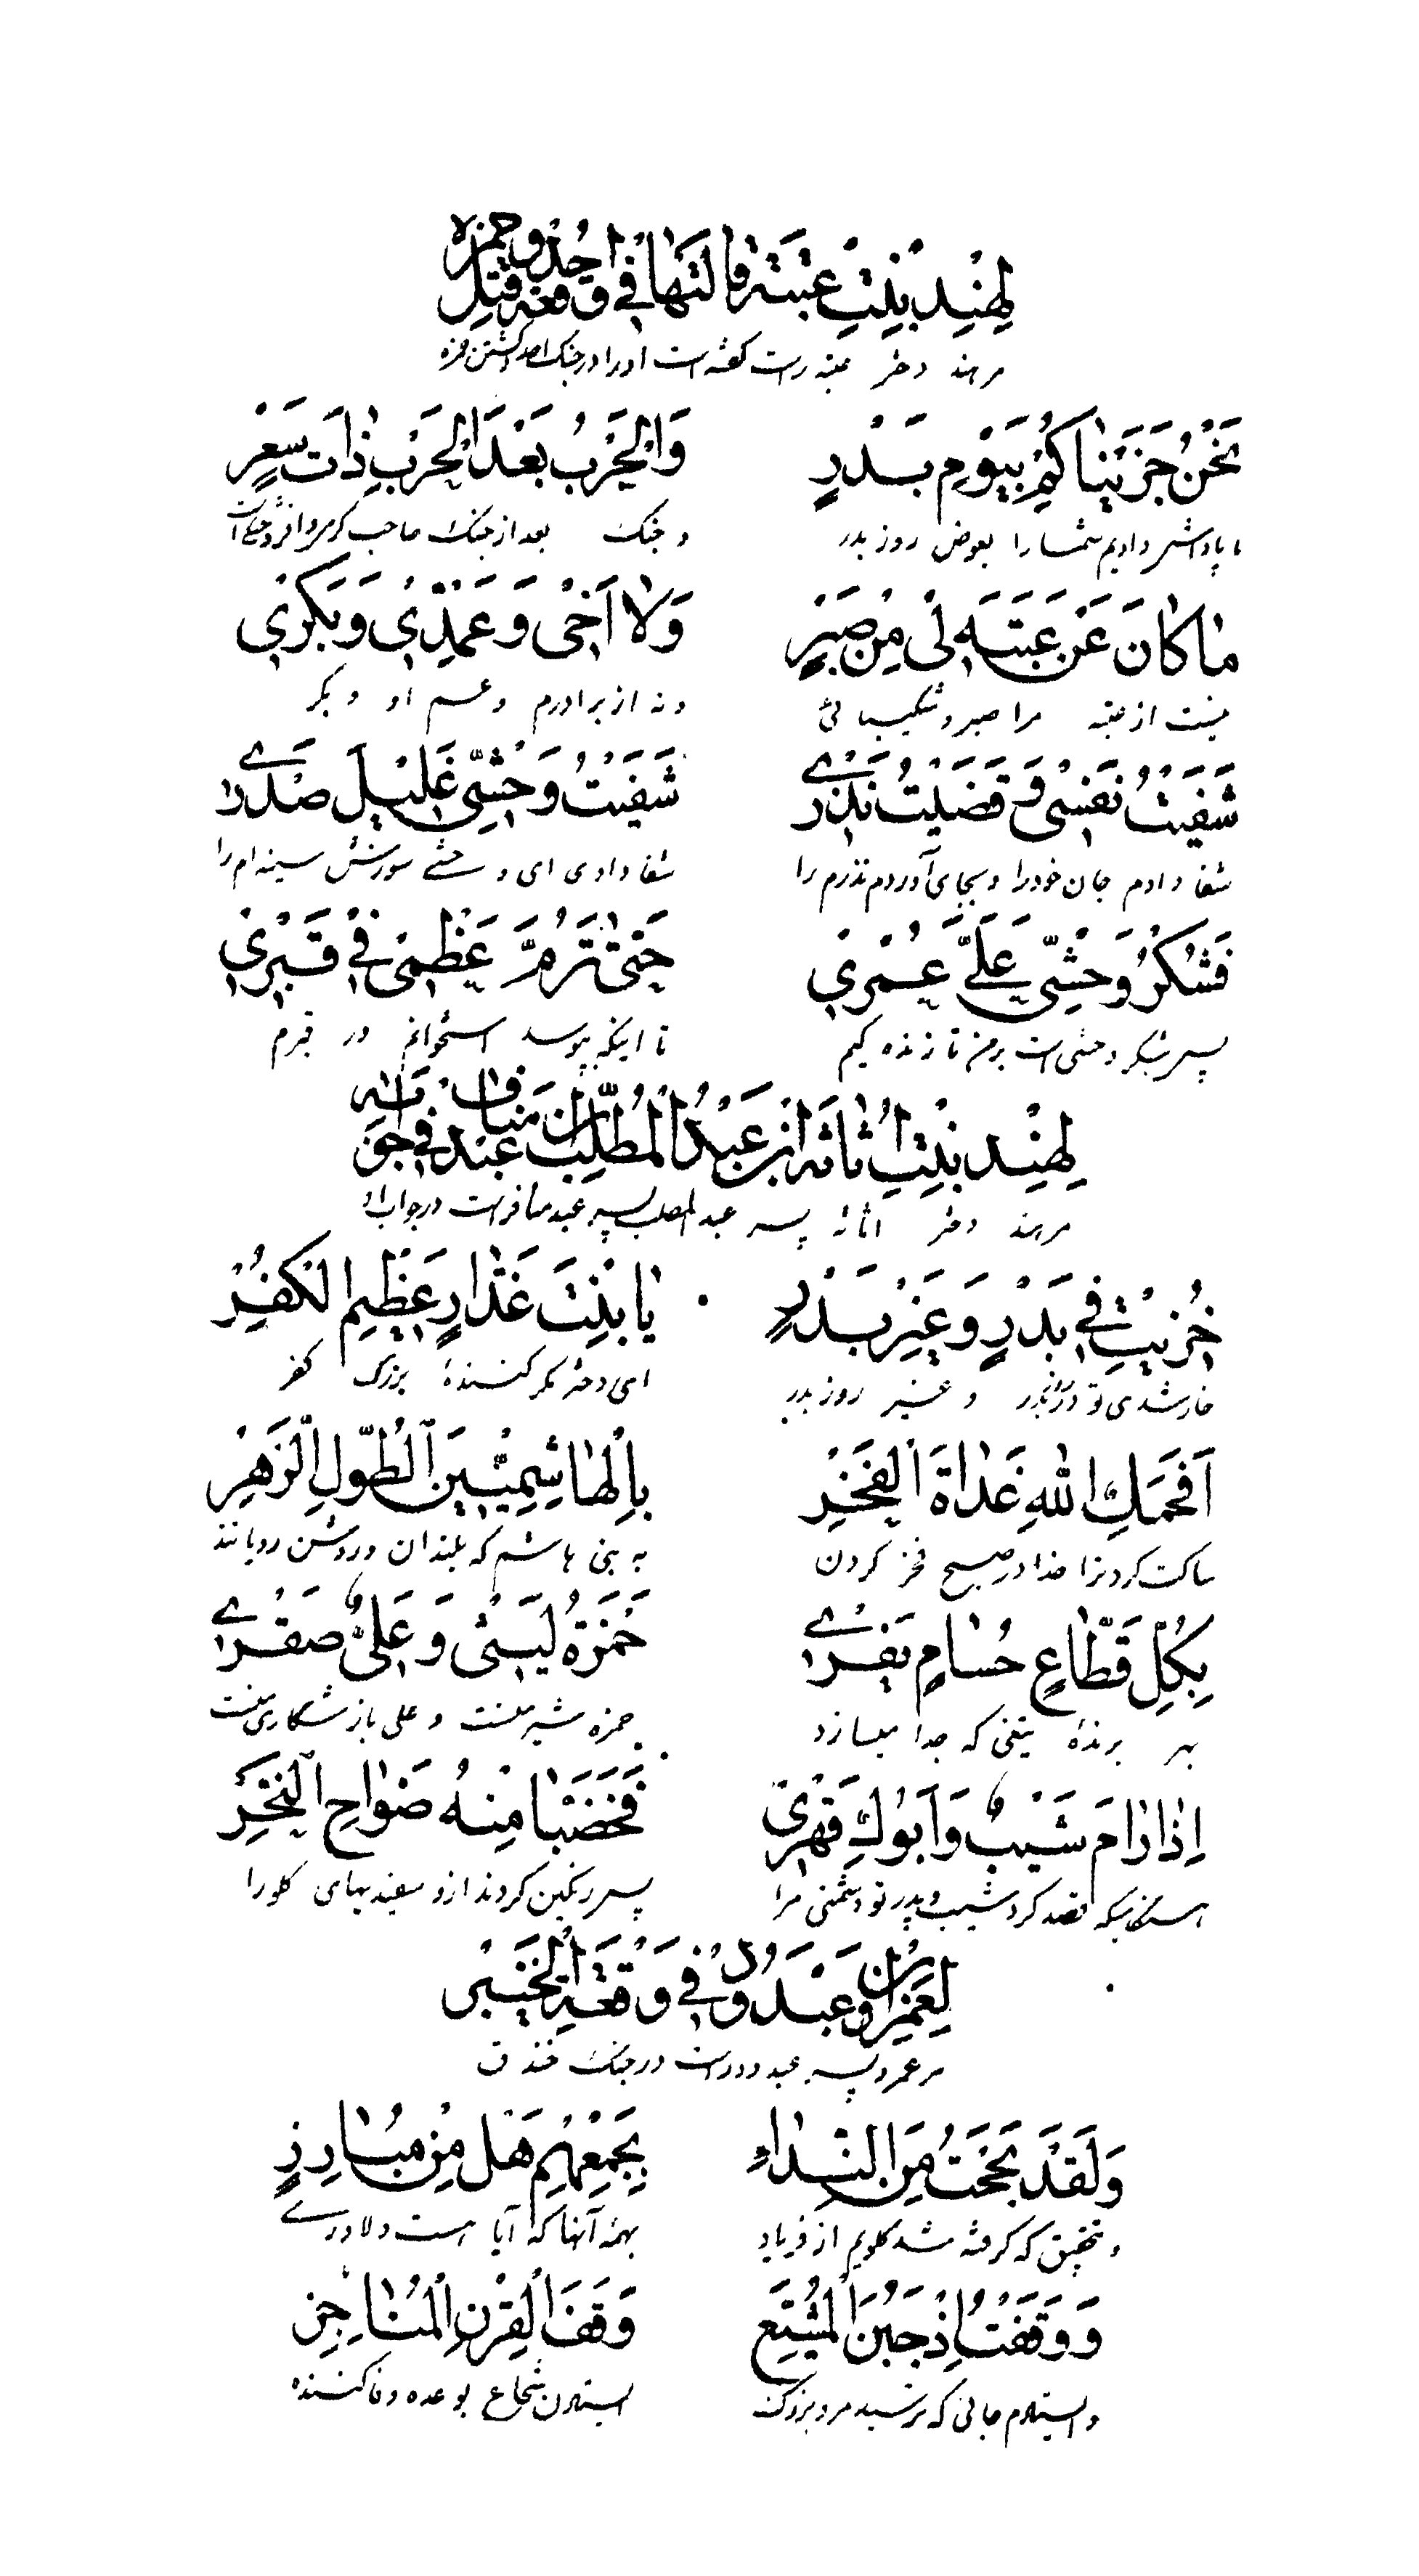 لِهِنْدٍ بِنْتِ عُتْبَةَ قالَتْهَا فِي وَقْعَةِ اُحُدٍ وَقَتْلِ حَمْزَه
مر هند دختر عتبه راست گفته است او را در جنگ احد و کشتن حمزه
نَحْنُ جَزَيْنٰاكُمْ بِيَوْمِ بَدْرٍ وَالْحَرْبُ بَعْدَ الْحَرْبِ ذٰاتَ سَعْرٍ
ما پاداش دادیم شما را بعوض روز بدر و جنگ بعد از جنگ صاحب گرمی و افروختگی است
مٰا كٰانَ عَنْ عُتْبَةَ لِي مِنْ صَبْرٍ وَلٰا اَخِي وَعَمِّهِ وَبَكْرِي
نیست از عتبه مرا صبر و شکیبائی و نه از برادرم و عم او و بکر
شَفَيْتُ نَفْسِي وَقَضَيْتُ نَذْرِي شَفَيْتَ وَحْشِيُّ غَلِيلَ صَدْرِي
شفا دادم جان خود را و بجای آوردم نذرم را شفا دادی ای وحشی سوزش سینه‌ام را
فَشُكْرُ وَحْشِيٍّ عَلَيَّ عُمْرِي حَتّٰى تَرُمَّ عَظْمِي فِي قَبْرِي
پس شکر وحشی است بر من تا زنده گیم تا اینکه بپوسد استخوانم در قبرم
لِهِنْدٍ بِنْتِ اُثٰاثَةَ ابْنِ عَبْدُ الْمُطَّلِبِ بْنِ عَبْدِ مَنٰافٍ فِي جَوٰابِهِ
مر هند دختر اثاثه پسر عبد المطلب پسر عبد مناف راست در جواب او
خُزِيْتِ فِي بَدْرٍ وَغَيْرِ بَدْرٍ يٰا بِنْتَ غَدّٰارٍ عَظِيمِ الْكُفْرِ
خار شدی تو در روز بدر و غیر روز بدر ای دختر مکر کنندهٔ بزرگ کفر
اَفْحَمَكِ اللهُ غَدٰاةَ الْفَخْرِ بِالْهٰاشِمِيِّينَ الطُّوّلِ الزُّهْرِ
ساکت کرد ترا خدا در صبح فخر کردن به بنی هاشم که بلندان و روشن رویانند
بِكُلِّ قَطّٰاعٍ حُسٰامٍ يَفْرِي حَمْزَةُ لَيْثِي وَعَلِيٌّ صَقْرِي
بهر برندهٔ تیغی که جدا میسازد حمزه شیر منست و علی باز شکاری منست
اِذٰا رٰامَ شَيْبٌ وَاَبُوكِ قَهْرِي فَخَضَبٰا مِنْهُ ضَوٰاحِ النَّحْرِ
هنگامیکه قصد کرد شیب و پدر تو دشمنی مرا پس رنگین کردند ازو سفیدیهای گلو را
لِعَمْرِو ابْنِ عَبْدِ وُدٍّ فِي وَقْعَةِ الْخَيْبَر
مر عمرو پسر عبد ود راست در جنگ خندق
وَلَقَدْ بَحَحْتُ مِنَ النِّدٰاءِ بِجَمْعِهِمْ هَلْ مِنْ مُبٰارِزٍ
و بتحقیق که گرفته شد گلویم از فریاد بهمهٔ آنها که آیا هست دلاوری
وَوَقَفْتُ اِذْ جَبُنَ الْمُشَيَّعُ وَقْفَ الْقِرْنِ الْمُنٰاجِزِ
و ایستادم جائی که ترسید مرد بزرگ ایستادن شجاع بوعده وفا کننده